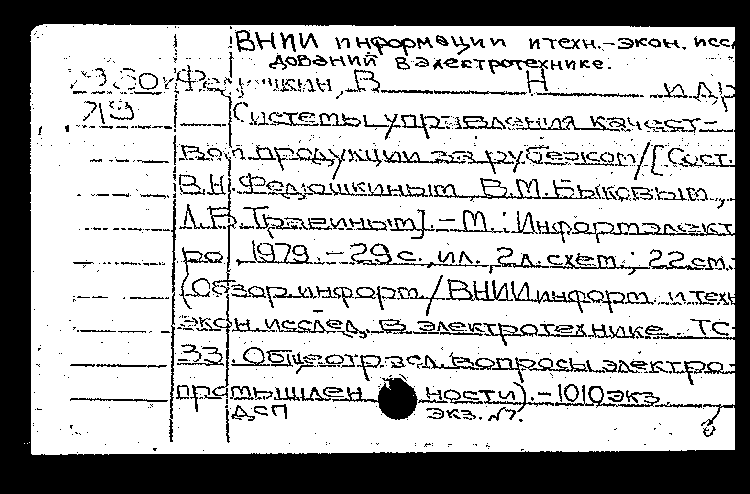 ВНИИ информации и техн.-экон. иссле
дований в электротехнике.
Федюшкин, В Н и др
Л9 Системы управления качест-
вом продукции за рубежом/[Сост.
В.Н.Федюшкиным, В.М.Быковым,
Л.Б.Травиным].-М.: Информэлект
ро, 1979.-29с., ил., 2л.схем.; 22см.
(Обзор.информ./ВНИИ информ. и техн
экон.исслед. в электротехнике. ТС-
33. Общеотрасл.вопросы электро-
промышленности).-1010экз.
ДСП экз.№7.